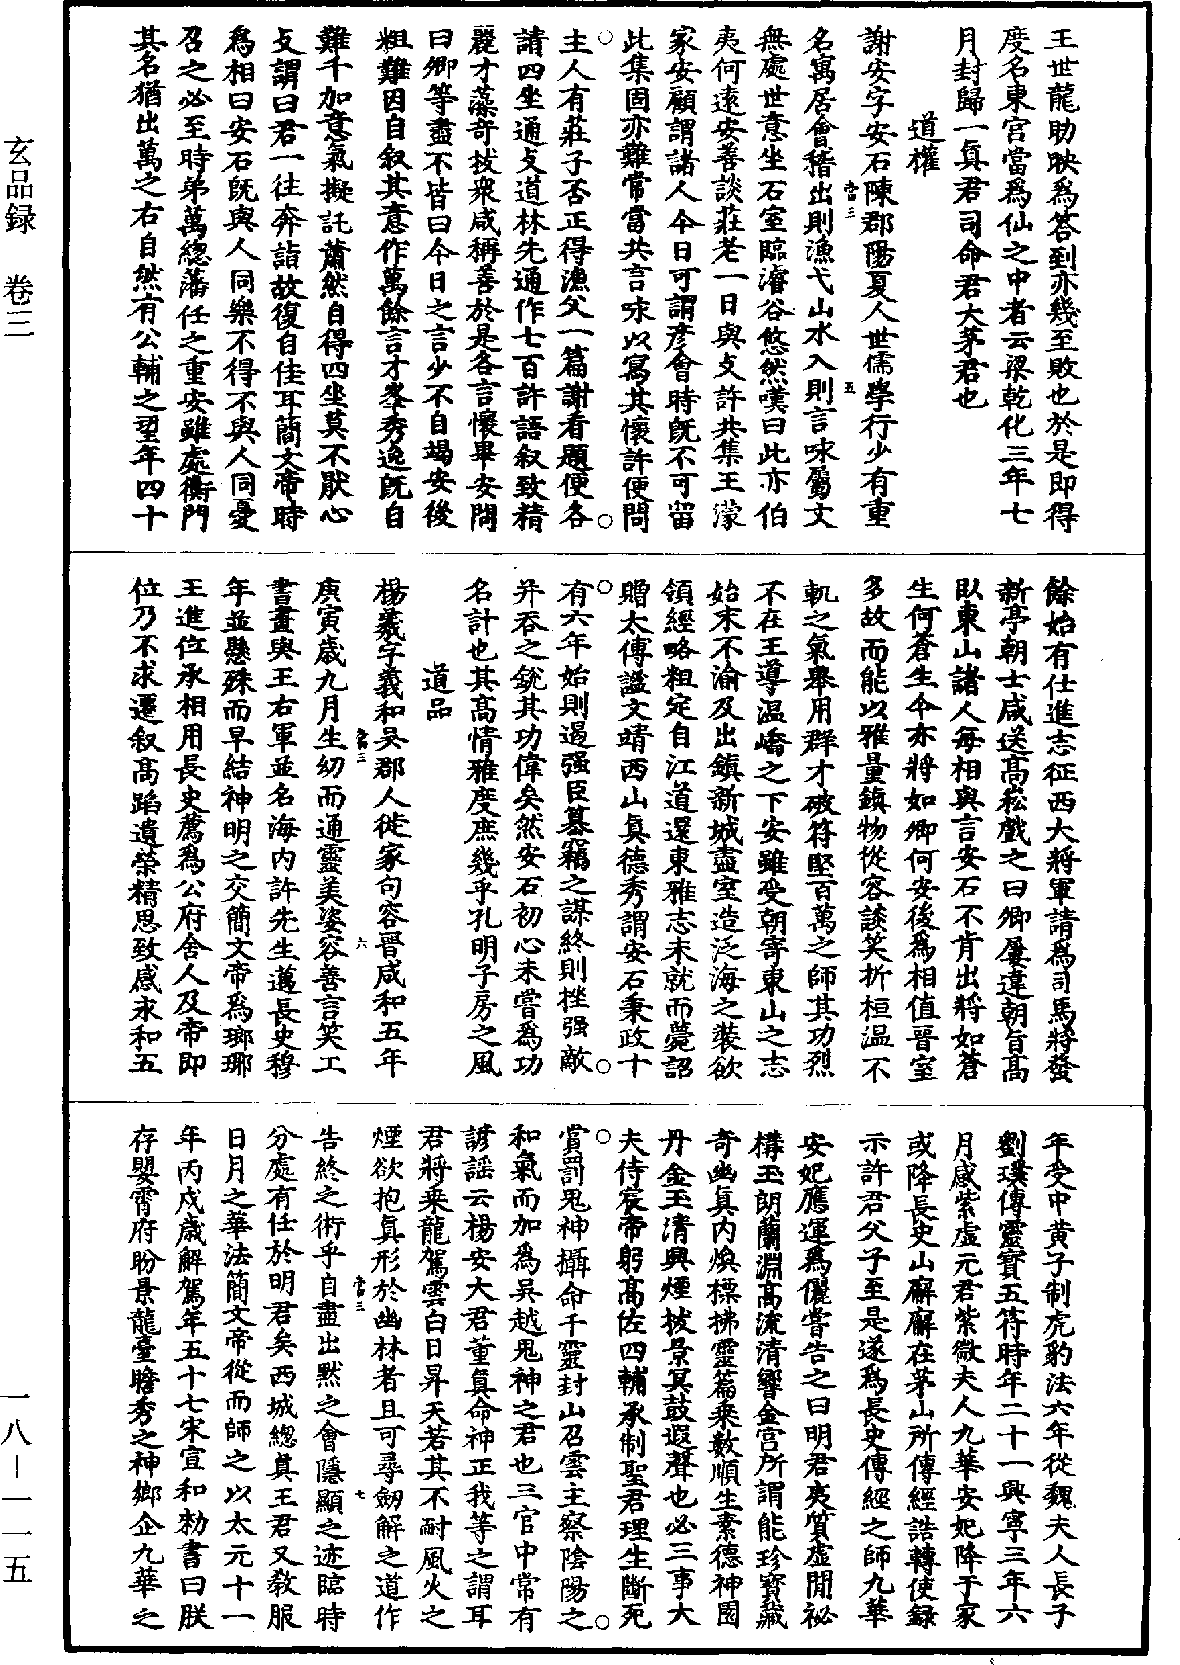 王世龍助映爲答到亦幾至敗也於是即得
度名東宮當爲仙之中者云梁乾化三年七
月封歸一真君司命君大茅君也
道權
謝安字安石陳郡陽夏人世儒學行少有重
名寓居會稽出則漁弋山水入則言咏屬文
無處世意坐石室臨濬谷悠然嘆曰此亦伯
夷何遠安善談莊老一日與支許共集王濛
家安顧謂諸人今日可謂彥會時既不可留
此集固亦難常當共言咏以寫其懷許便問
主人有莊子否正得漁父一篇謝看題便各
請四坐通支道林先通作七百許語叙致精
麗才藻奇拔衆咸稱善於是各言懷畢安問
曰卿等盡不皆曰今日之言少不自竭安後
粗難因自叙其意作萬餘言才峯秀逸既自
難千加意氣擬託蕭然自得四坐莫不猒心
支謂曰君一往奔詣故復自佳耳簡文帝時
爲相曰安石既與人同樂不得不與人同憂
召之必至時弟萬緫藩任之重安雖處衡門
其名猶出萬之右自然有公輔之望年四十
餘始有仕進志征西大將軍請爲司馬將發
新亭朝士咸送高崧戲之曰卿屢違朝旨高
臥東山諸人每相與言安石不肯出將如蒼
生何蒼生今亦將如卿何安後爲相值晉室
多故而能以雅量鎮物從容談笑折桓温不
軌之氣舉用群才破符堅百萬之師其功烈
不在王導温嶠之下安雖受朝寄東山之志
始末不渝及出鎮新城盡室造泛海之裝欲
領經略粗定自江道還東雅志未就而薨詔
贈太傅謚文靖西山真德秀謂安石秉政十
有六年始則遏强臣篡竊之謀終則挫强敵
并吞之鋭其功偉矣然安石初心未嘗爲功
名計也其高情雅度庶幾乎孔明子房之風
道品
楊羲字羲和吳郡人徙家句容晉咸和五年
庚寅歲九月生幼而通靈美姿容善言笑工
書畫與王右軍並名海内許先生邁長史穆
年並懸殊而早結神明之交簡文帝爲瑯琊
王進位承相用長史薦爲公府舍人及帝即
位乃不求遷叙高蹈遺榮精思致感永和五
年受中黄子制虎豹法六年從魏夫人長子
劉璞傳靈寶五符時年二十一興寧三年六
月感紫虛元君紫微夫人九華安妃降于家
或降長史山廨廨在茅山所傳經誥轉使録
示許君父子至是遂爲長史傳經之師九華
安妃應運爲儷嘗告之曰明君夷質虛閒祕
構玉朗蘭淵高流清響金宫所謂能珍寶藏
奇幽真内煥標拂靈篇乘數順生素德神園
丹金玉清興煙披景冥鼓遐聲也必三事大
夫侍宸帝躬高佐四輔承制聖君理生斷死
賞罰鬼神攝命千靈封山召雲主察陰陽之
和氣而加爲吳越鬼神之君也三官中常有
諺謡云楊安大君董真命神正我等之謂耳
君將乘龍駕雲白日昇天若其不耐風火之
煙欲抱真形於幽林者且可尋劒解之道作
告終之術乎自盡出黙之會隱顯之迹賠時
分處有任於明君矣西城緫真王君又教服
日月之華法簡文帝從而師之以太元十一
年丙戍歲解駕年五十七宋宣和勑書曰朕
存嬰霄府盼景龍臺瞻秀之神鄉企九華之
玄品録 卷三
一八－一一五